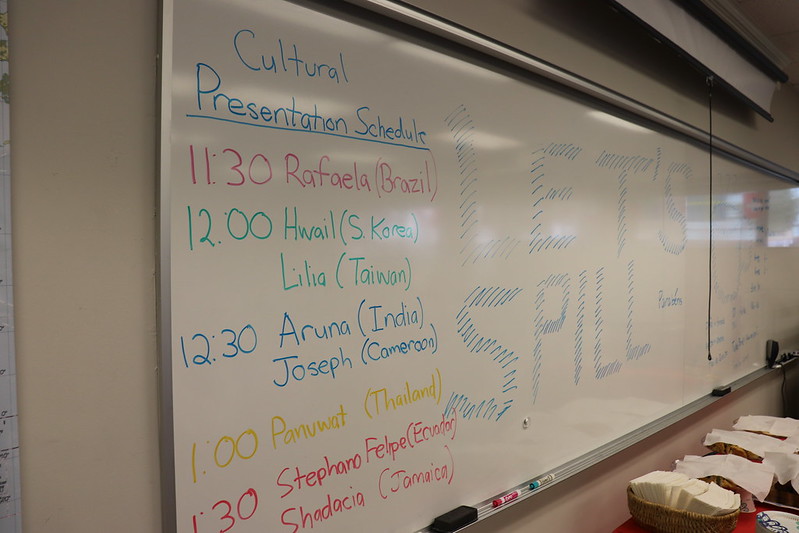 Cultural
Presentation Schedule
11:30 Rafaela (Brazil)
12:00 Hwail (S. Korea)
Lilia (Taiwan)
12:30 Aruna (India)
Joseph (Cameroon)
1:00 Panuwat (Thailand)
1:30 Stephano Felipe (Ecuador)
Shadacia (Jamaica)
LET'S
SPILL